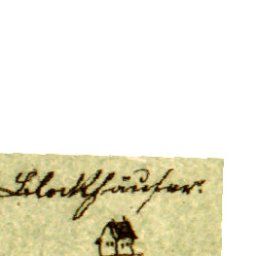 Blockhäuser.